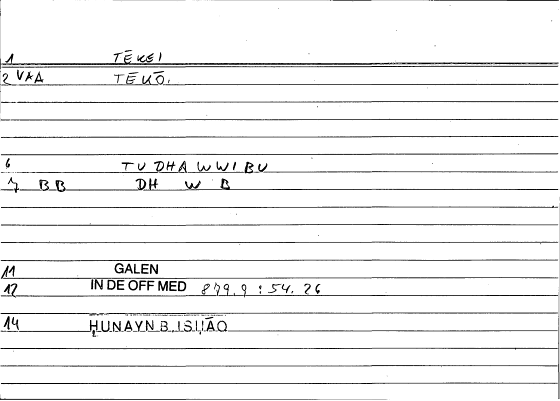 1 TĒKEI
2 VAA TĒKŌ.
6 TU DHA WWI BU
7 BB DH W B
11 GALEN
12 IN DE OFF MED 879.9 : 54. 26
14 ḤUNAYN B. ISḤĀQ